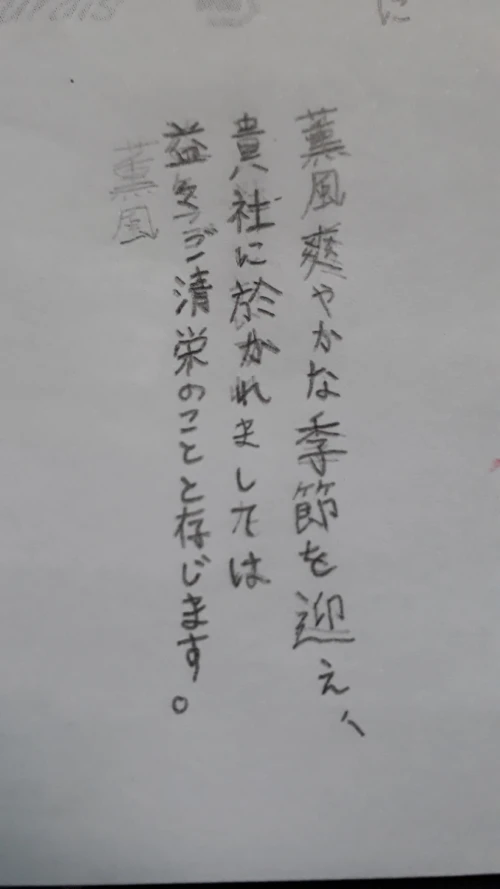 に
薫風爽やかな季節を迎え、
貴社に於かれましては
益々ご清栄のことと存じます。
薫風